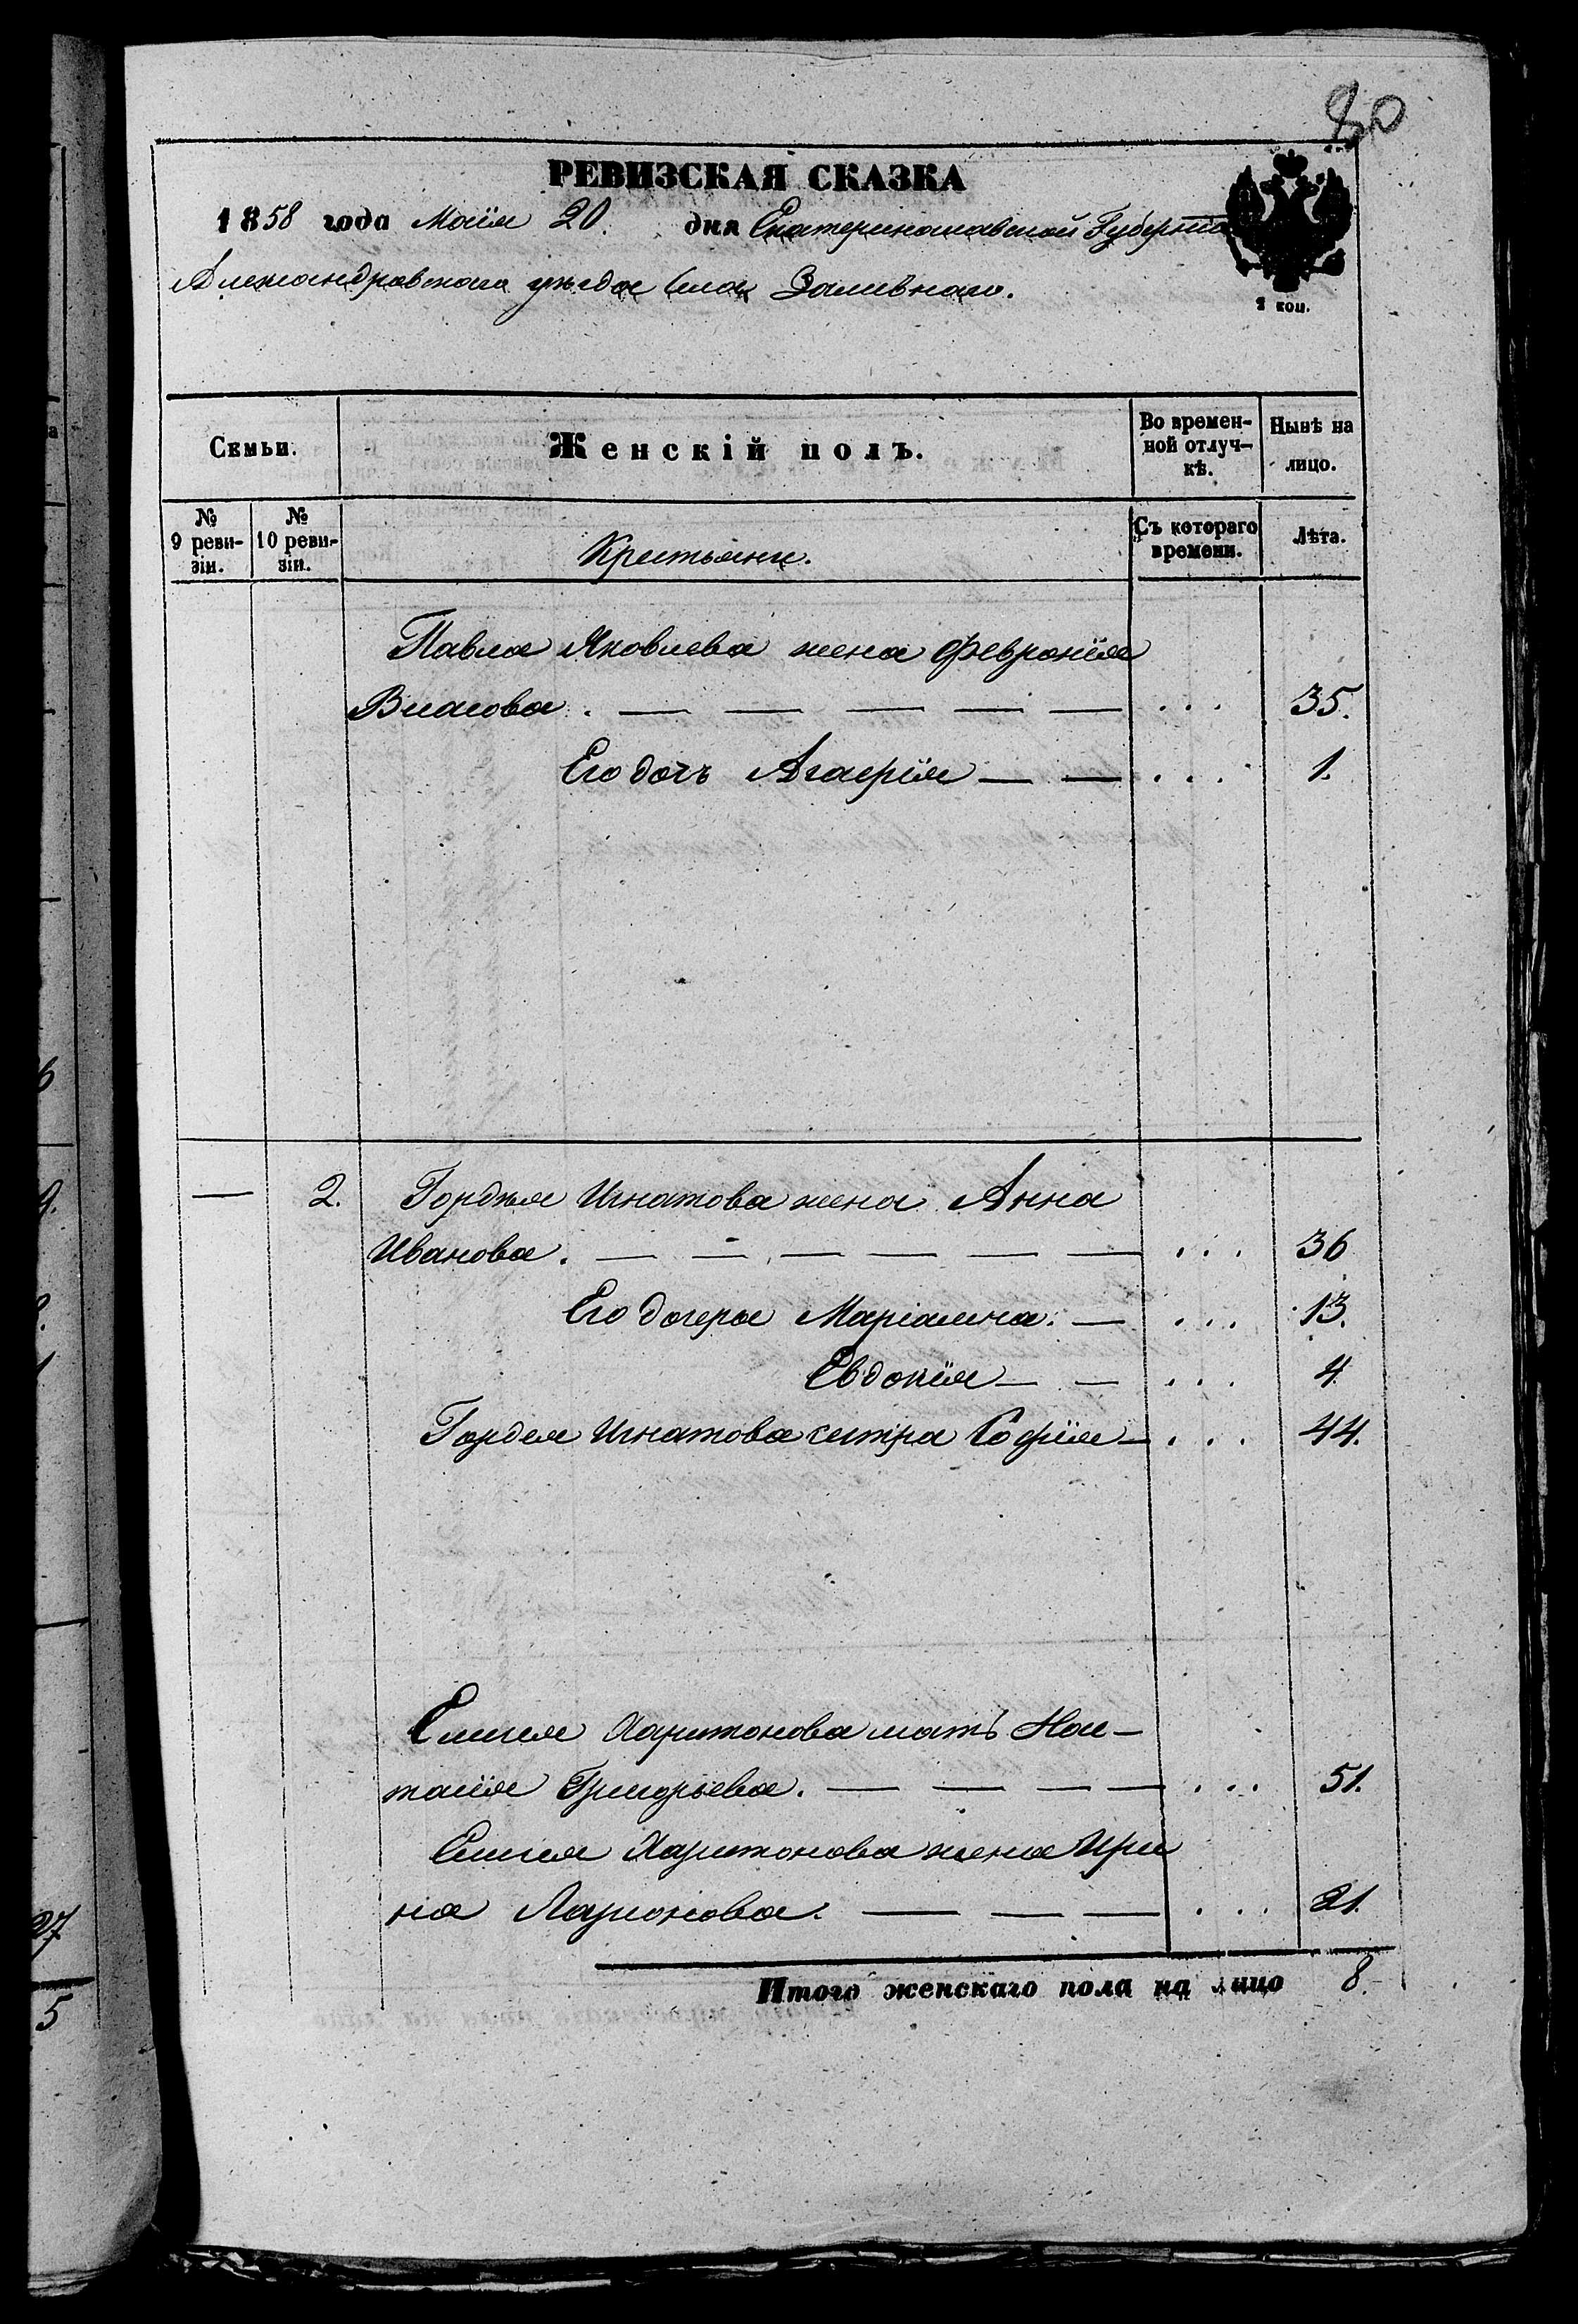 80
РЕВИЗСКАЯ СКАЗКА
1858 года Маія 20. дня Екатеринославской Губерніи
Александровскаго уѣзда Села Заливнаго.
1 коп.
Семьи. Женскій полъ. Во времен-
ной отлуч-
кѣ. Нынѣ на
лицо.
№
9 реви-
зіи. №
10 реви-
зіи. Крестьяни. Съ котораго
времени. Лѣта.
Павла Яковлева жена Февронія
Власова. — — — — — . . . 35.
Его дочь Агафія — — . . . 1.
— 2. Гордѣя Игнатова жена Анна
Иванова. — — — — — — . . . 36
Его дочеря Маріамна: — . . . 13.
Евдокія — — . . . 4
Гордея Игнатова сестра Софія — . . . 44.
Елисея Харитонова мать На-
талія Григорьева. — — — — . . . 51.
Елисея Харитонова жена Ири
на Ларионова. — — — . . . 21.
Итого женскаго пола на лицо 8.
27
5